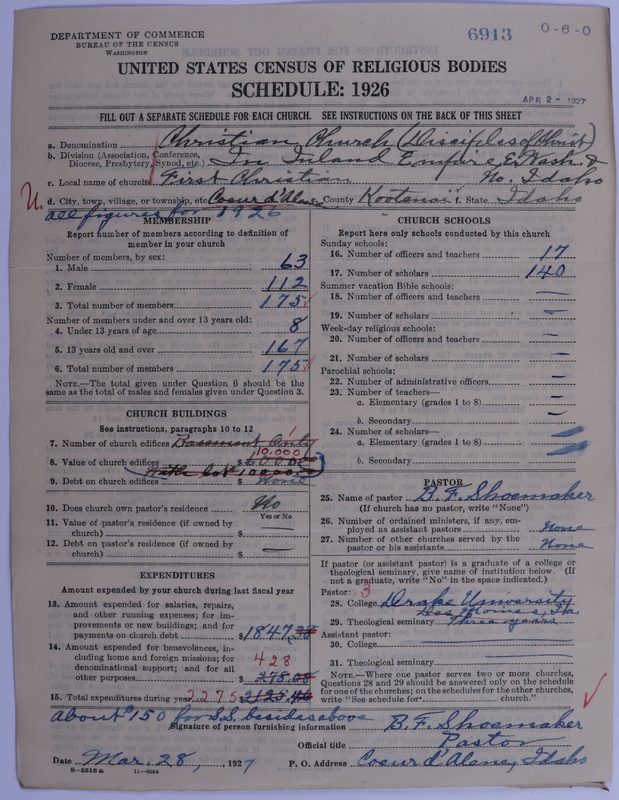 DEPARTMENT OF COMMERCE
BUREAU OF THE CENSUS
WASHINGTON
6913
0-6-0
UNITED STATES CENSUS OF RELIGIOUS BODIES
SCHEDULE: 1926
APR 2 - 1927
FILL OUT A SEPARATE SCHEDULE FOR EACH CHURCH. SEE INSTRUCTIONS ON THE BACK OF THIS SHEET
a. Denomination Christian Church (Disciples of Christ)
b. Division (Association, Conference, Diocese, Presbytery, Synod, etc.) In Inland Empire, E. Wash. &
c. Local name of church First Christian No. Idaho
d. City, town, village, or township, etc. Coeur d'Alene County Kootenai f. State Idaho
all figures for 1926
MEMBERSHIP
Report number of members according to definition of
member in your church
Number of members, by sex:
1. Male 63
2. Female 112
3. Total number of members 175
Number of members under and over 13 years old:
4. Under 13 years of age 8
5. 13 years old and over 167
6. Total number of members 175
NOTE.—The total given under Question 6 should be the
same as the total of males and females given under Question 3.
CHURCH BUILDINGS
See instructions, paragraphs 10 to 12
1
7. Number of church edifices Basement Only
10,000
8. Value of church edifices $
With lot 10000.00
9. Debt on church edifices $ None
10. Does church own pastor's residence No
Yes or No
11. Value of pastor's residence (if owned by
church) $
12. Debt on pastor's residence (if owned by
church) $ —
EXPENDITURES
Amount expended by your church during last fiscal year
13. Amount expended for salaries, repairs,
and other running expenses; for im-
provements or new buildings; and for
payments on church debt $1847.38
14. Amount expended for benevolences, in-
cluding home and foreign missions; for
denominational support; and for all
428
other purposes $ 278.08
15. Total expenditures during year 2275 2125.46
about $150 for S.S. besides above
CHURCH SCHOOLS
Report here only schools conducted by this church
Sunday schools:
16. Number of officers and teachers 17
17. Number of scholars 140
Summer vacation Bible schools:
18. Number of officers and teachers —
19. Number of scholars —
Week-day religious schools:
20. Number of officers and teachers —
21. Number of scholars —
Parochial schools:
22. Number of administrative officers —
23. Number of teachers—
a. Elementary (grades 1 to 8) —
b. Secondary —
24. Number of scholars—
a. Elementary (grades 1 to 8)
b. Secondary
PASTOR
25. Name of pastor B. F. Shoemaker
(If church has no pastor, write "None")
26. Number of ordained ministers, if any, em-
ployed as assistant pastors None
27. Number of other churches served by the
pastor or his assistants None
If pastor (or assistant pastor) is a graduate of a college or
theological seminary, give name of institution below. (If
not a graduate, write "No" in the space indicated.)
Pastor: 3
28. College Drake University
Des Moines, Ia.
29. Theological seminary Three years
Assistant pastor:
30. College
31. Theological seminary
NOTE.—Where one pastor serves two or more churches,
Questions 28 and 29 should be answered only on the schedule
for one of the churches; on the schedules for the other churches,
write "See schedule for church."
Signature of person furnishing information B. F. Shoemaker
Official title Pastor
Date Mar. 28, 1927 P. O. Address Coeur d'Alene, Idaho
8-5518a 11-9564